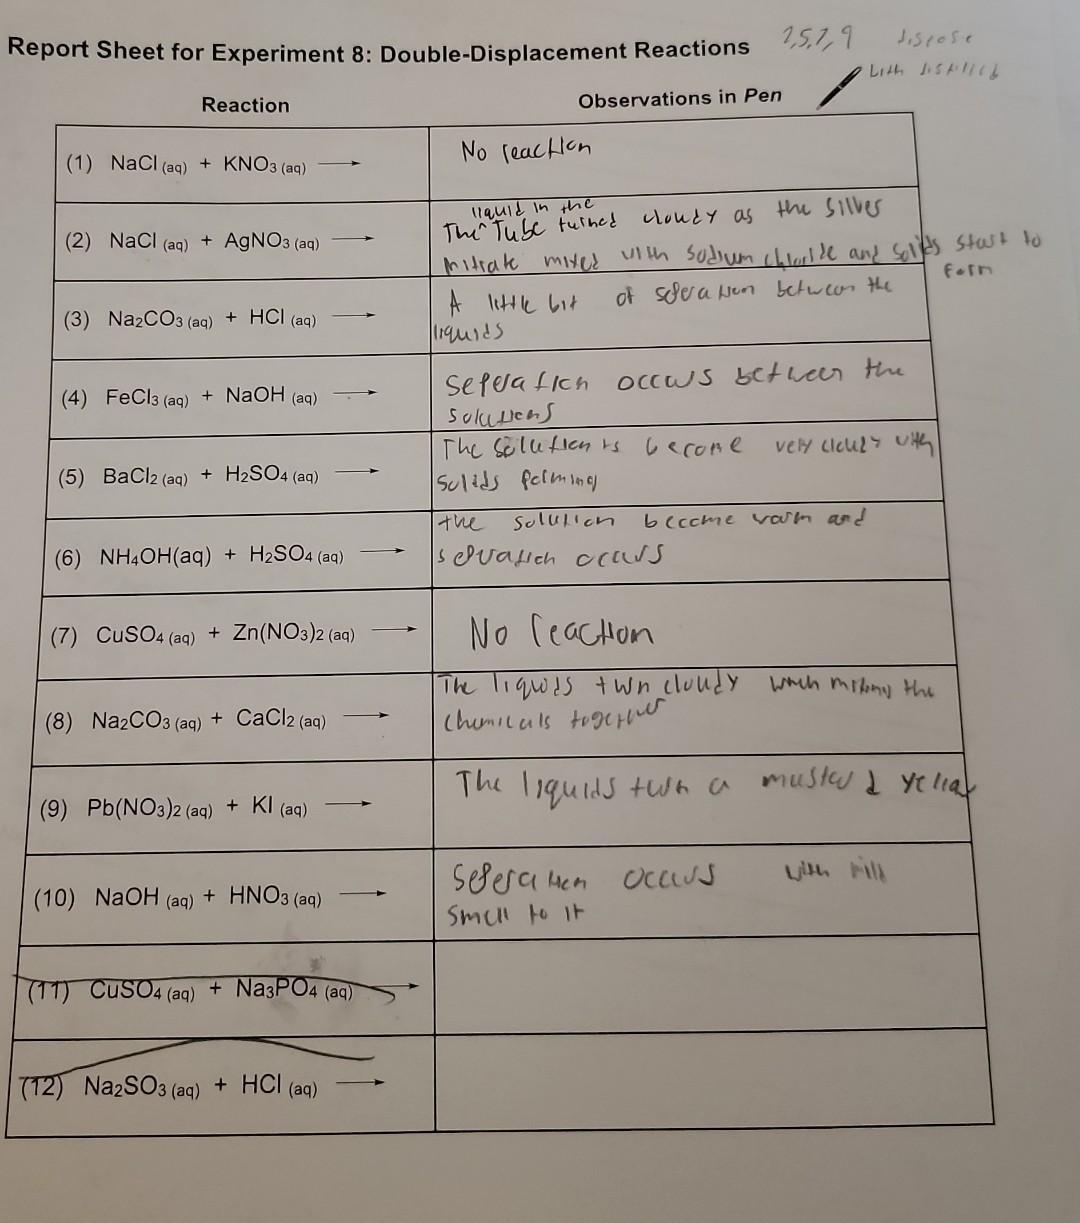 2,5,7,9 dispose
Report Sheet for Experiment 8: Double-Displacement Reactions
with
Reaction Observations in Pen
(1) NaCl (aq) + KNO3 (aq) → No reaction
liquid in the
(2) NaCl (aq) + AgNO3 (aq) → The Tube turned cloudy as the silver
nitrate mixed with sodium chloride and solids start to
form
(3) Na2CO3 (aq) + HCl (aq) → A little bit of seperation between the
liquids
(4) FeCl3 (aq) + NaOH (aq) → Seperation occurs between the
solutions
(5) BaCl2 (aq) + H2SO4 (aq) → The solution is become very cloudy with
solids forming
(6) NH4OH(aq) + H2SO4 (aq) → the solution become warm and
seperation occurs
(7) CuSO4 (aq) + Zn(NO3)2 (aq) → No reaction
(8) Na2CO3 (aq) + CaCl2 (aq) → The liquids turn cloudy when mixing the
chemicals together
(9) Pb(NO3)2 (aq) + KI (aq) → The liquids turn a mustard yellow
(10) NaOH (aq) + HNO3 (aq) → Seperation occurs with mild
smell to it
(11) CuSO4 (aq) + Na3PO4 (aq) →
(12) Na2SO3 (aq) + HCl (aq) →